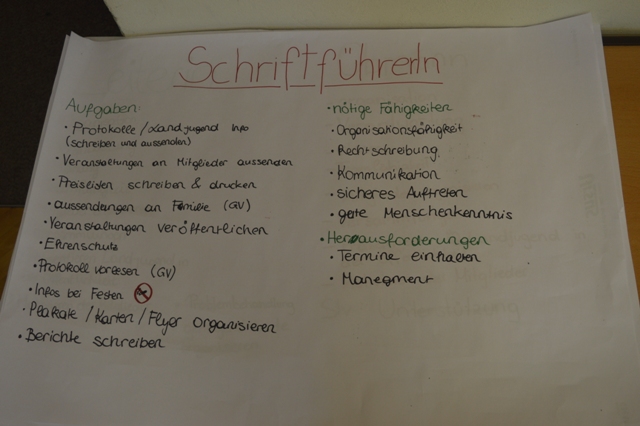 SchriftführerIn
Aufgaben:
• Protokolle / Landjugend Info
(schreiben und aussenden)
• Veranstaltungen an Mitglieder aussenden
• Preislisten schreiben & drucken
• aussendungen an Familie (GV)
• Veranstaltungen veröffentlichen
• Ehrenschutz
• Protokoll vorlesen (GV)
• Infos bei Festen
• Plakate / Karten / Flyer organisieren
• Berichte schreiben
• nötige Fähigkeiten
• Organisationsfähigkeit
• Rechtschreibung
• Kommunikation
• sicheres Auftreten
• gute Menschenkenntnis
• Herausforderungen
• Termine einhalten
• Manegment